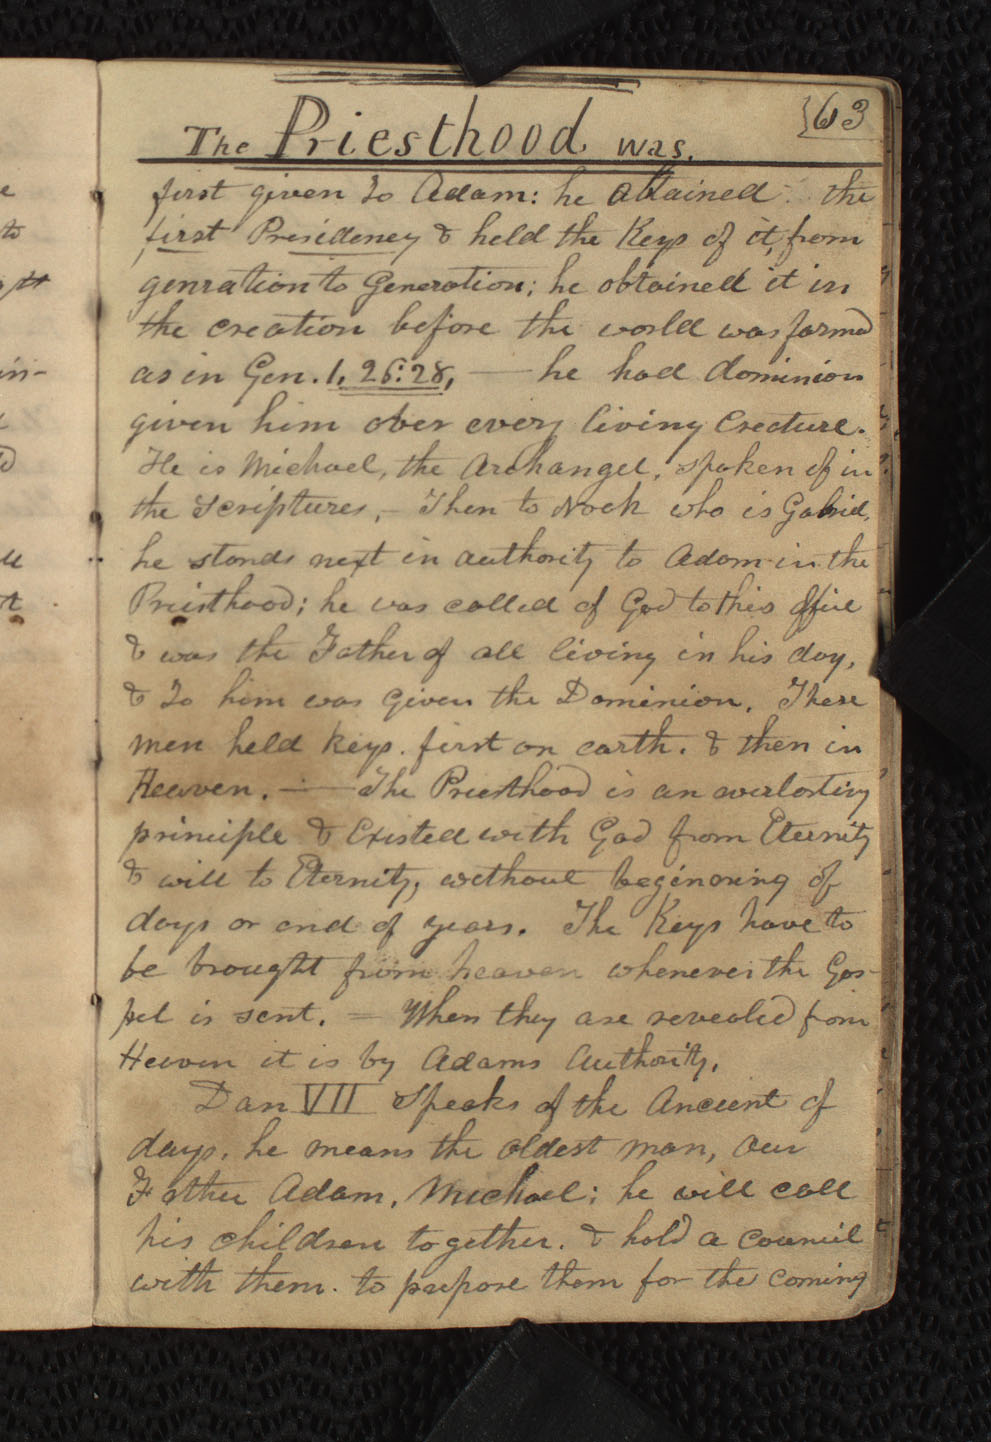 63
The Priesthood was.
first given To Adam: he obtained the
first Presidency & held the Keys of it, from
genration to Generation; he obtained it in
the creation before the world was formed
as in Gen. 1, 26:28, — he had dominion
given him over every living Creature.
He is Michael, the Archangel, spoken of in
the Scriptures, – Then to Noah who is Gabriel,
he stands next in authority to Adam in the
Priesthood; he was called of God to this office
& was the Father of all living in his day,
& To him was given the Dominion. These
men held keys. first on earth. & then in
Heaven. — The Priesthood is an everlasting
principle & Existed with God from Eternity
& will to Eternity, without beginning of
days or end of years. The Keys have to
be brought from heaven whenever the Gos-
pel is sent. – When they are revealed from
Heaven it is by Adams Authority.
Dan VII Speaks of the Ancient of
days, he means the oldest man, our
Father Adam, Michael; he will call
his children together. & hold a council
with them. to prepare them for the coming